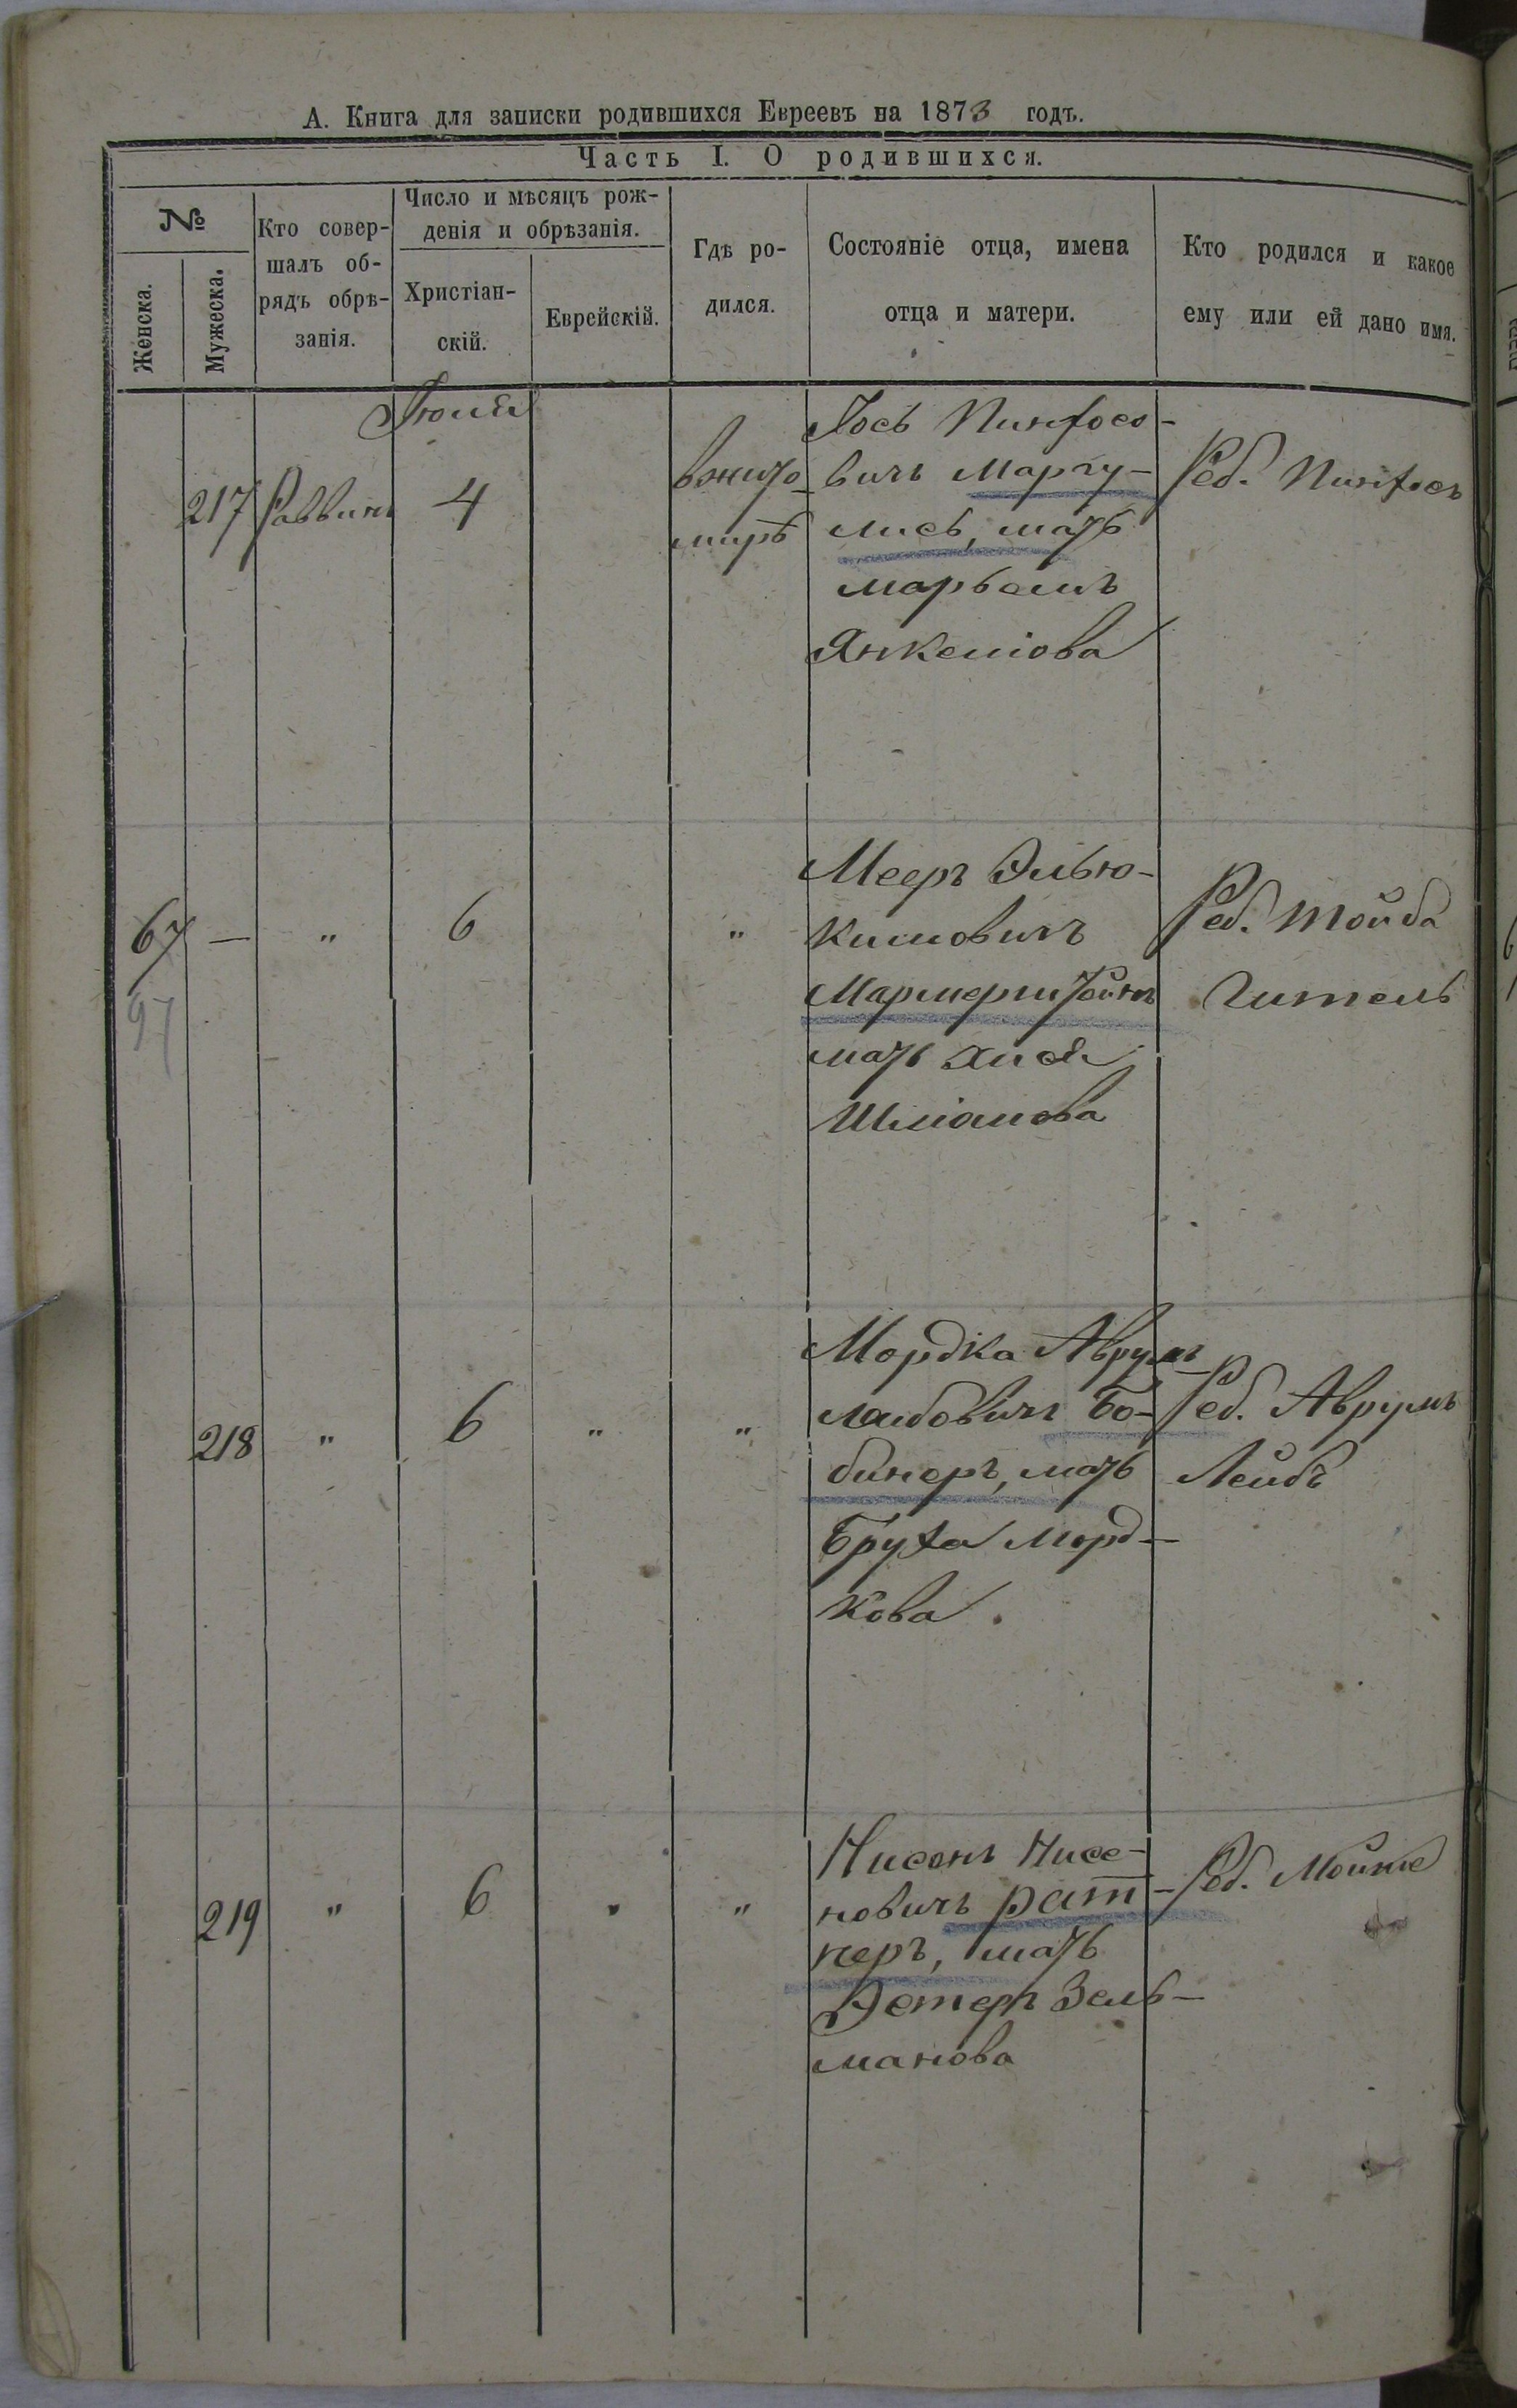 А. Книга для записки родившихся Евреевъ на 1873 годъ.
Часть I. О родившихся.
№
Женска.
Мужеска.
Кто совер-
шалъ об-
рядъ обрѣ-
занія.
Число и мѣсяцъ рож-
денія и обрѣзанія.
Христіан-
скій.
Еврейскій.
Гдѣ ро-
дился.
Состояніе отца, имена
отца и матери.
Кто родился и какое
ему или ей дано имя.
217
Раввинъ
Іюля
4
в жито-
мирѣ
Іось Пинхосо-
вичъ Маргу-
лисъ, мать
Марьемъ
Янкелiова
Реб. Пинхосъ
67
97
—
"
6
"
Мееръ Элью-
кимовичъ
Мармерштейнъ
мать Хися
Шліомова
Реб. Тойба
Гитель
218
"
6
"
"
Мордка Аврумъ
лейбовичъ Бо-
бинеръ, мать
Бруха Морд-
кова.
Реб. Аврумъ
Лейбъ
219
"
6
"
"
Нисонъ Нисе-
новичъ Рат-
неръ, мать
Эстеръ Зель-
манова
Реб. Мойше